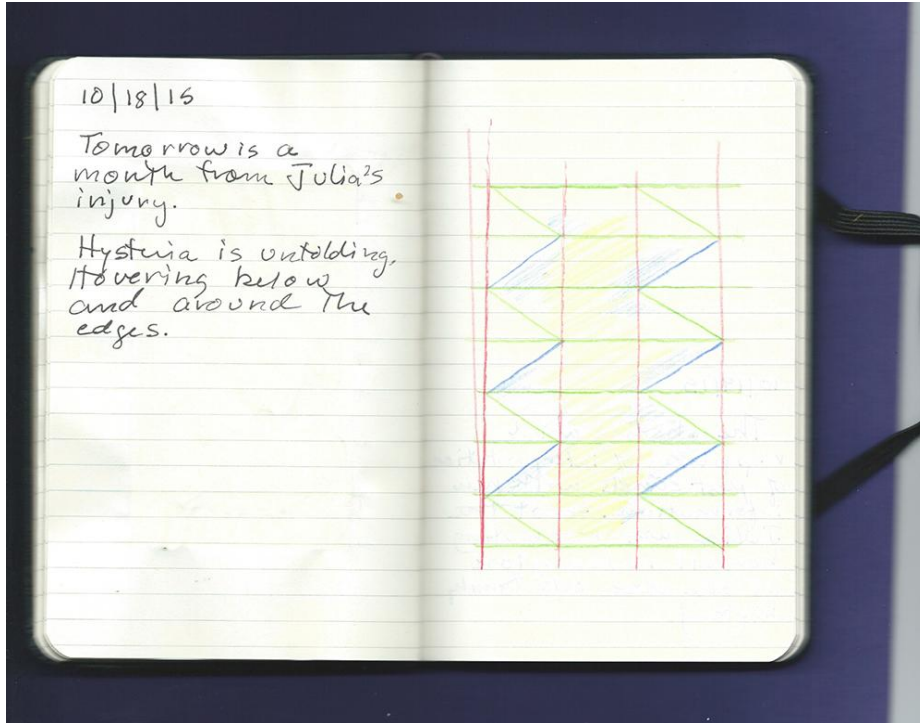 10/18/15
Tomorrow is a
month from Julia's
injury.
Hysteria is unfolding.
Hovering below
and around the
edges.